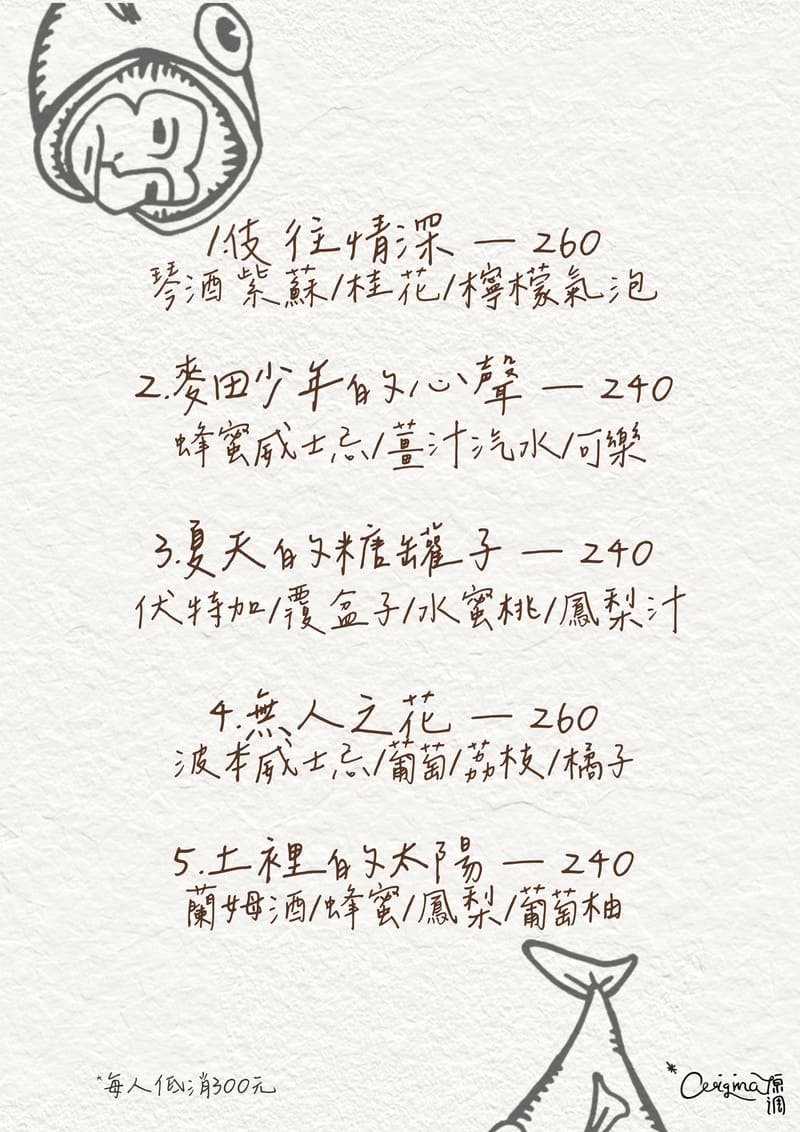 1.伎往情深 — 260
琴酒紫蘇/桂花/檸檬氣泡
2.麥田少年的心聲 — 240
蜂蜜威士忌/薑汁汽水/可樂
3.夏天的糖罐子 — 240
伏特加/覆盆子/水蜜桃/鳳梨汁
4.無人之花 — 260
波本威士忌/葡萄/荔枝/橘子
5.土裡的太陽 — 240
蘭姆酒/蜂蜜/鳳梨/葡萄柚
*每人低消300元
*Origina原調